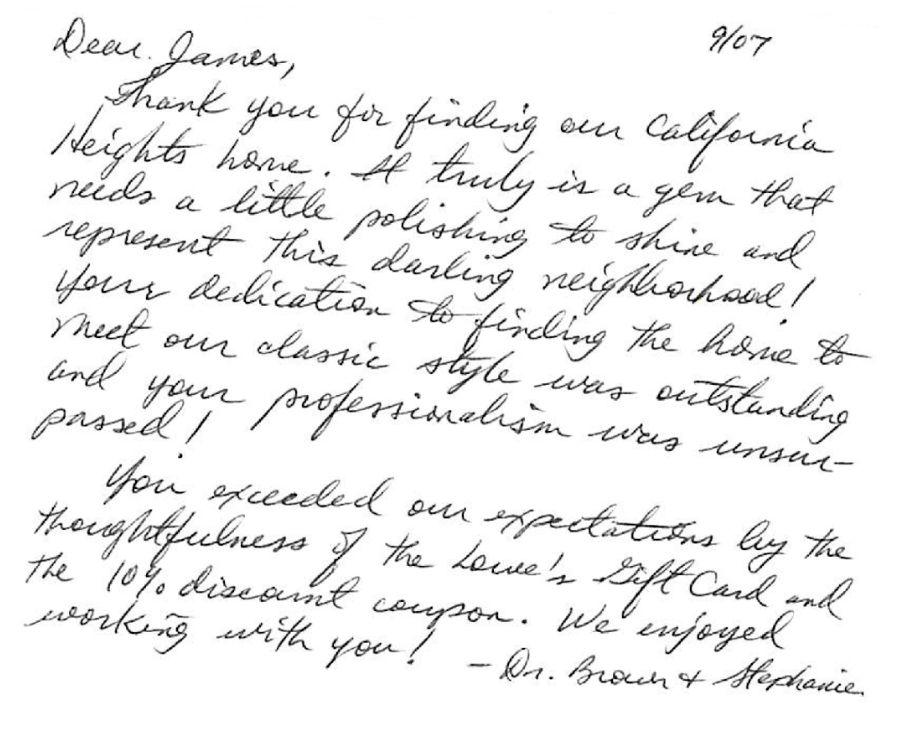 9/07
Dear James,
Thank you for finding our California
Heights home. It truly is a gem that
needs a little polishing to shine and
represent this darling neighborhood!
Your dedication to finding the home to
meet our classic style was outstanding
and your professionalism was unsur-
passed!
You exceeded our expectations by the
thoughtfulness of the Lowe's Gift Card and
the 10% discount coupon. We enjoyed
working with you!
- Dr. Brown & Stephanie